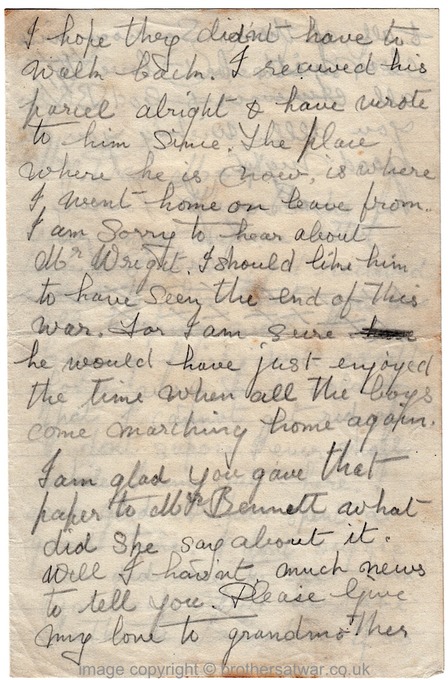 I hope they didn't have to
walk back. I recieved his
parcel alright & have wrote
to him since. The place
where he is now, is where
I, went home on leave from.
I am sorry to hear about
Mr Wright. I should like him
to have seen the end of this
war. For I am sure
he would have just enjoyed
the time when all the boys
come marching home again.
I am glad you gave that
paper to Mrs Bennett what
did she say about it.
Well I hav'nt, much news
to tell you. Please Give
my love to grandmother
image copyright © brothersatwar.co.uk